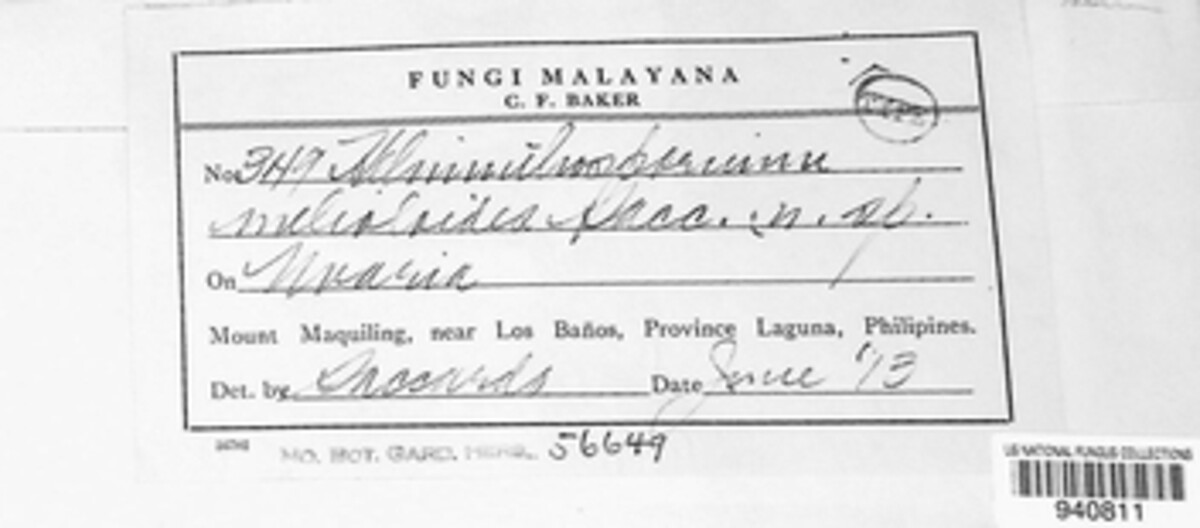 FUNGI MALAYANA
C. F. BAKER
TYPE
No. 349 Helminthosporium
melioloides Sacc. n. sp.
On Uvaria
Mount Maquiling, near Los Baños, Province Laguna, Philipines.
Det. by Saccardo Date June '13
MO. BOT. GARD. HERB. 56649
US NATIONAL FUNGUS COLLECTIONS
940811